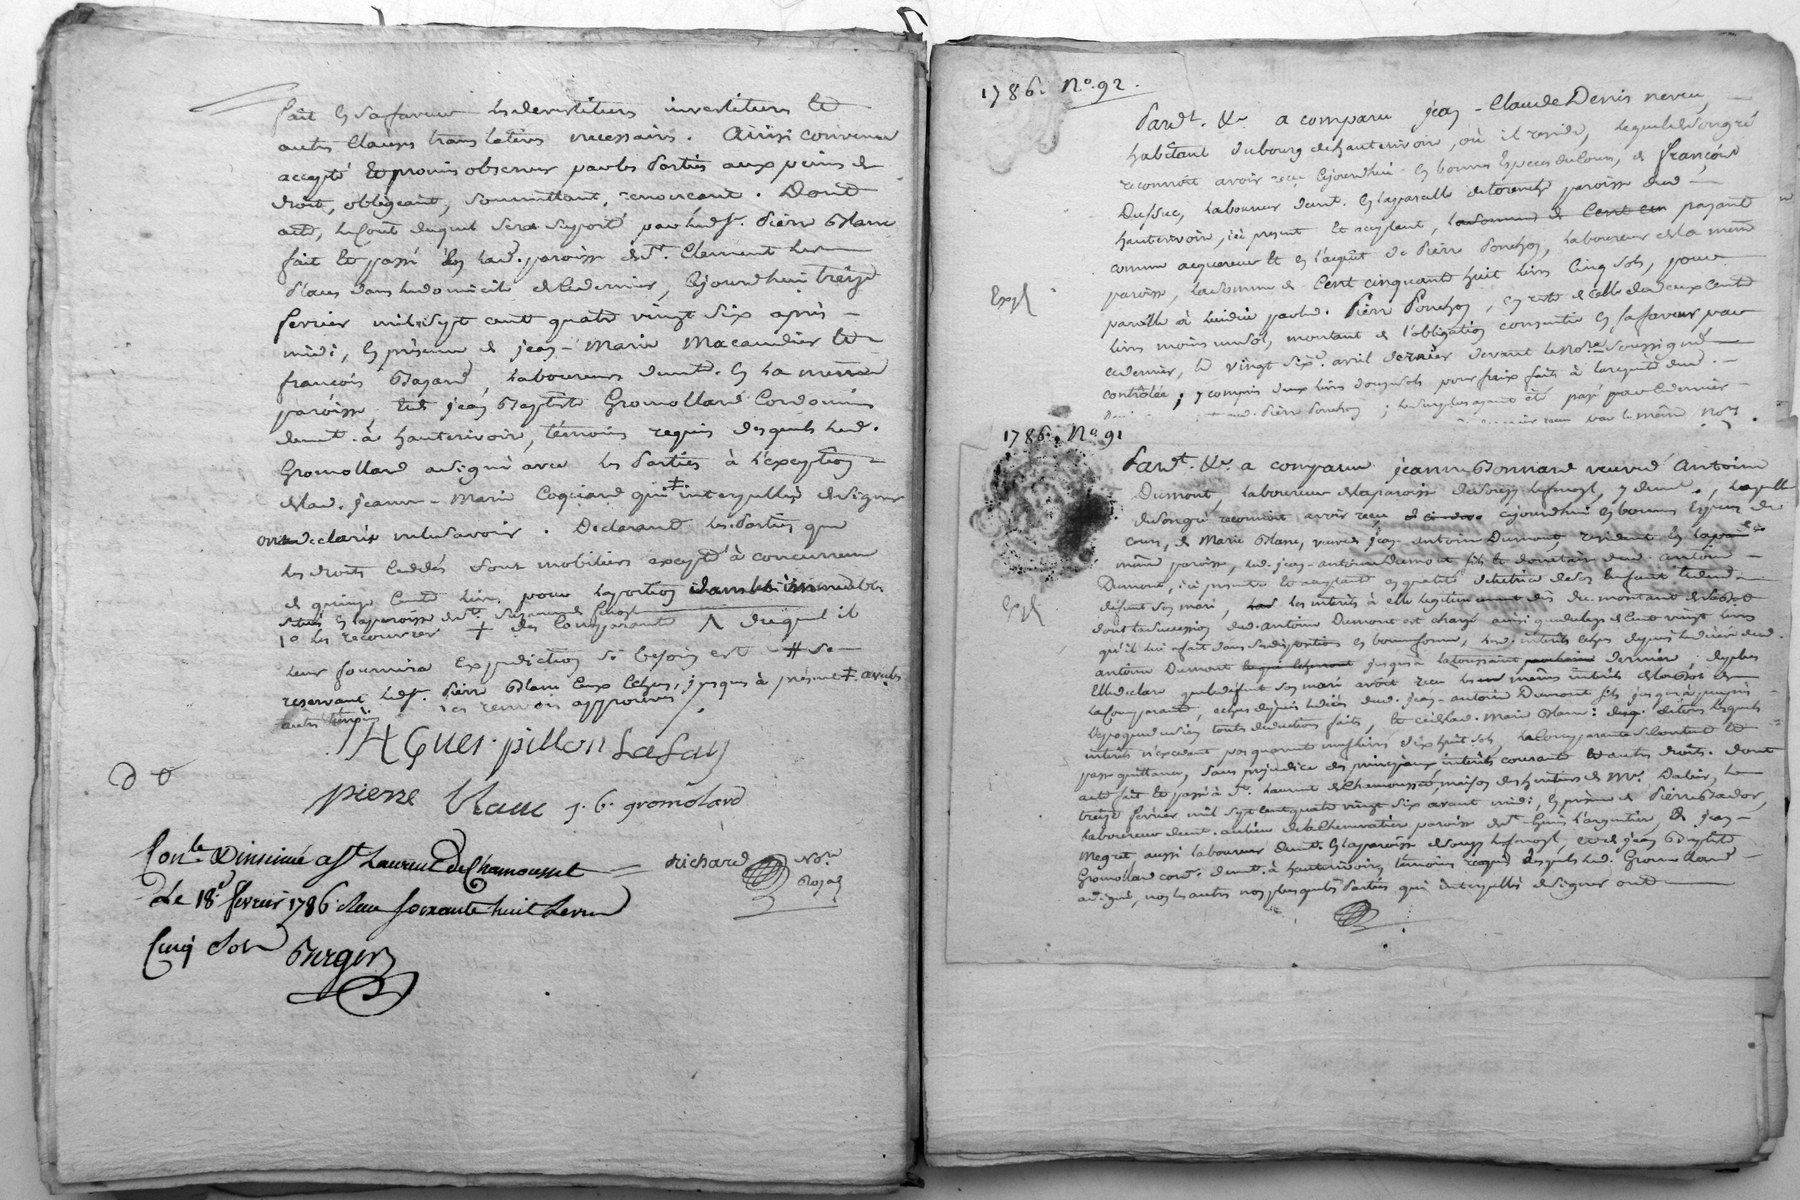 fait en sa faveur les devestitures investitures et
autres clauses translatives necessaires. Ainsi convenu
accepté et promis observer par les parties aux peines de
droit, obligeant, soumettant, renonceant. Dont
acte, le coût duquel sera suporté par led. sr. Pierre Blanc
fait et passé en lad. paroisse de st. Clement les
places dans le domicile de ce dernier, cejourdhui treize
fevrier mil sept cent quatre vingt six après
midi, en présence de jean-Marie Macaudier et
françois Bazard, laboureurs demt. en la meme
paroisse et de jean Baptiste Gromollard Cordonnier
demt. à hauterivoire, témoins requis desquels led.
Gromollard a signé avec les parties à l'exception
de lad. jeanne-Marie Coquard qui ‡ interpellés de signer
ont declaré ne le savoir. Declarant les parties que
les droits cedés sont mobiliers excepté à concurrence
de quinze cent livres pour la portion dans les immeubles
situés en la paroisse de st.
1o les recouvrer + des Comparants ^ duquel il
leur fournira expediction si besoin est # se
reservant led. sr. Pierre Blanc ceux echus, jusques à présent ‡ avec les
autres temoins ies renvois approuvés
JAques. pillon Lafay
pierre blanc j. b. gromolard
Conlé & insinué a St Laurent de Chamousset
richard Nore Royal
Le 18e fevrier 1786. Reçu soixante huit Livres
Cinq Sols Berger
1786. No. 92.
Pardt. &c. a comparu jean-Claude Denis neveu,
habitant du bourg de hauterivoire, où il reside, lequel de son gré
reconnoit avoir reçu cejourdhui en bonnes especes du cours, de françois
Dussuc, laboureur demt. en la parcelle de torenche paroisse dud.
hauterivoire, ici present et acceptant, la somme de Cent cin payant
comme acquereur et en l'acquit de Pierre Ponchon, laboureur de la même
paroisse, la somme de Cent cinquante huit livres Cinq sols, pour
Expé
pareille à lui due par led. Pierre Ponchon, en reste de celle de deux cents
livres moins un sol, montant de l'obligation consentie en sa faveur par
ce dernier, le vingt six avril dernier devant le Nore. soussigné
contrôlée; y compris deux livres douze sols pour frais faits à la requête dud.
Pierre Ponchon; le surplus ayant été payé par ce dernier
par le même Nore.
1786. No. 91
Pardt. &c. a comparu jeanne Bonnard veuve d'Antoine
Dumont, laboureur de la paroisse de Souzy l'argent., y demt., laquelle
de son gré reconnoit avoir reçu cejourdhui en bonnes especes du
cours, de Marie Blanc, veuve de jean-antoine Dumont, residente en la
même paroisse, led. jean-antoine Dumont fils et donataire dud. antoine
Dumont, ici presente et acceptant en qualité de tutrice de ses enfants et dud.
Expé
défunt son mari, les interêts à elle legitimement dus du montant de sa dot
dont la succession dud. antoine Dumont est chargé ainsi que du legs de Cent vingt livres
qu'il lui a fait dans ses dispositions en bonne forme, led. interêts echus depuis le decès dud.
antoine Dumont jusqu'à la toussaint dernier; de plus
Elle declare que led. défunt son mari avoit reçu les mêmes interêts de la dot de
la comparante, echus depuis le decès dud. jean-antoine Dumont fils jusqu'à
l'epoque toute deduction faite, et ceux de lad. Marie Blanc: lesquels
interêts n'excedant pas quarante neuf livres dix huit sols, la Comparante se Contente et
passe quittance, sans préjudice des principaux interêts courants et autres droits. Dont
acte fait et passé à St. Laurent de Chamousset, maison des heritiers de Mr. Dalbin, le
treize fevrier mil sept cent quatre vingt six avant midi, en présence de Pierre Bador,
laboureur demt. au lieu de la Chevrotiere paroisse de St. Genis l'argentier, & de jean
Megret aussi laboureur demt. en la paroisse de Souzy l'argent., et de jean Baptiste
Gromollard cord. demt. à hauterivoire, témoins requis desquels led. Gromollard
a signé, non les autres non plus que les Parties qui interpellés de signer ont